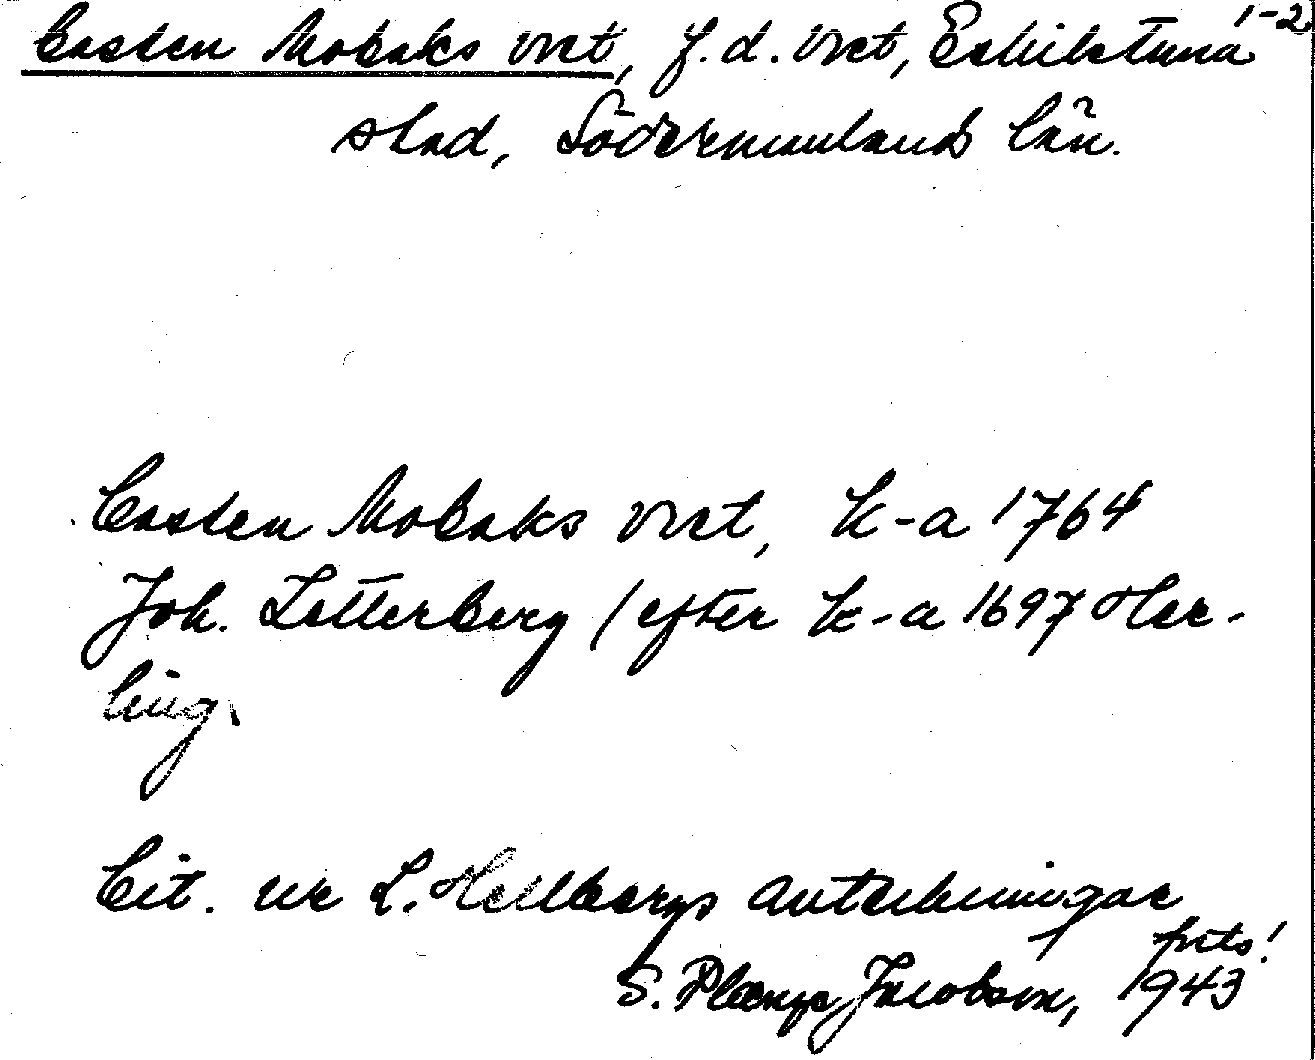 1-2
Casten Mobaks vret, f.d. vret, Eskilstuna
stad, Södermanlands län.
Casten Mobaks vret, k-a 1764
Joh. Letterberg (efter k-a 1697 Her-
ling.
Cit. ur L. Hellbergs anteckningar
prits!
S. Jacobson, 1943